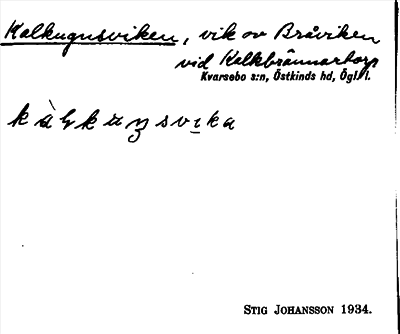 Kalkugnsviken, vik av Bråviken
vid Kalkbrännartorp
Kvarsebo s:n, Östkinds hd, Ögl. l.
STIG JOHANSSON 1934.